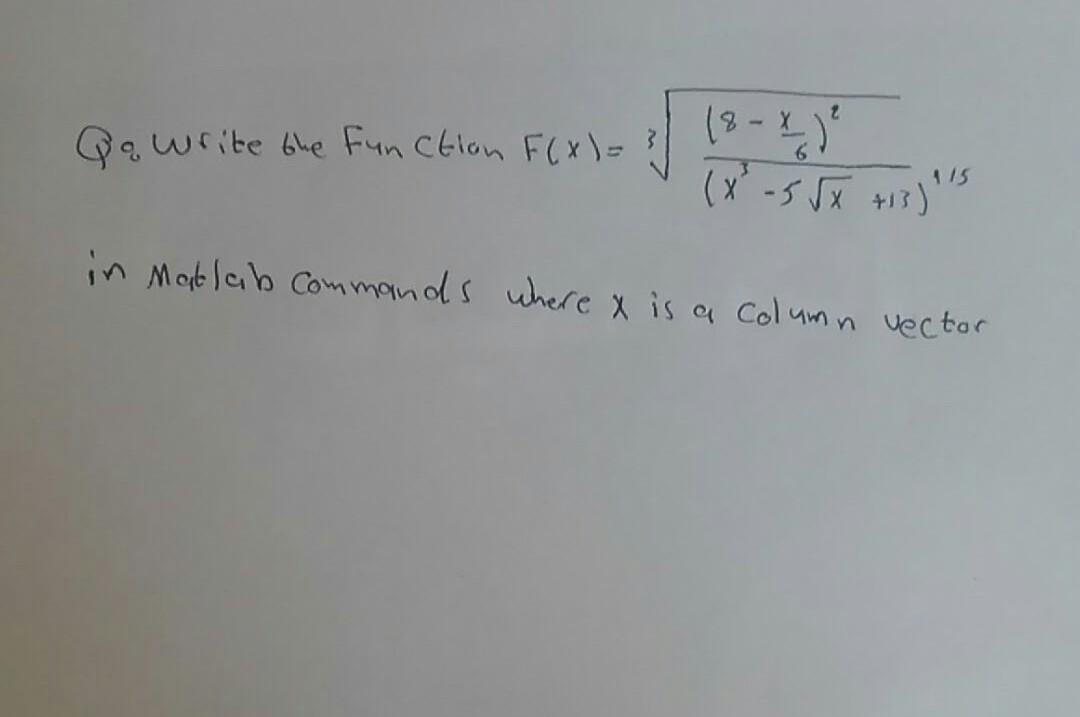 Q: Write the Function F(x) = ∛((8 - x/6)² / (x³ - 5√x + 13)^1/5)
in Matlab Commands where x is a column vector